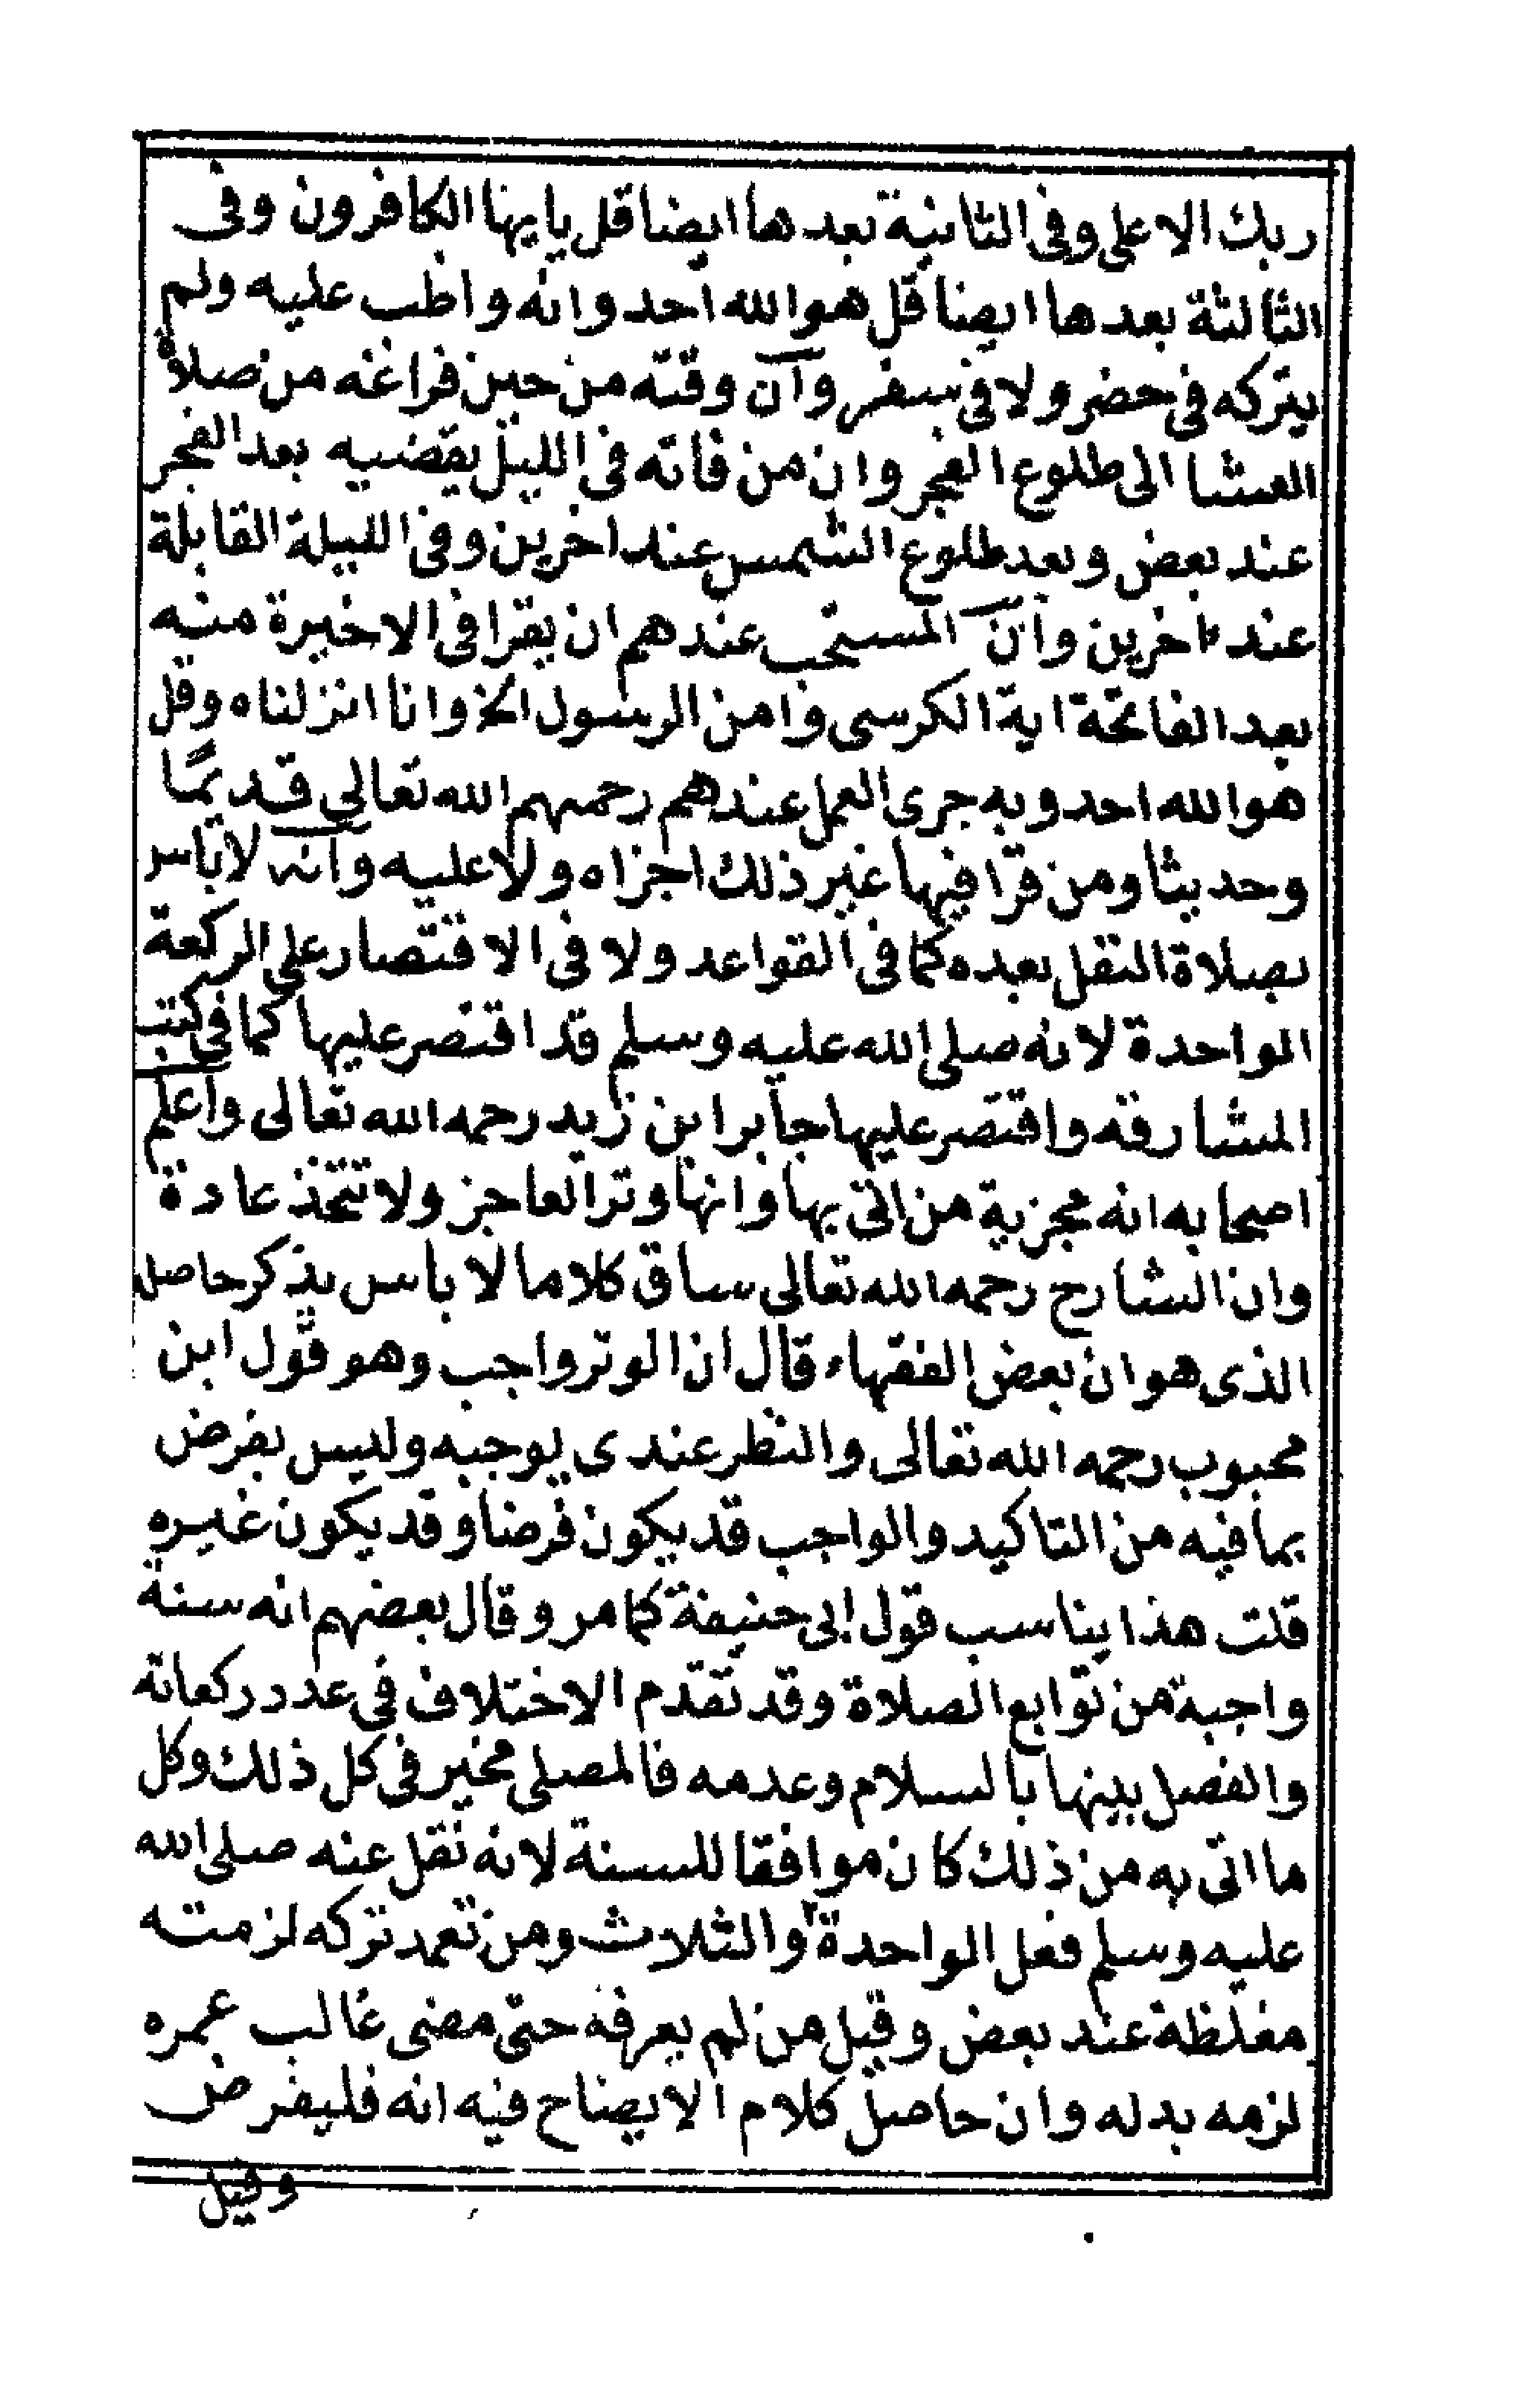 ربك الاعلى وفى الثانية بعدها ايضا قل يايها الكافرون وفى
الثالثة بعدها ايضا قل هو الله احد وانه واظب عليه ولم
يتركه فى حضر ولا فى سفر وآن وقته من حين فراغه من صلاة
العشا الى طلوع الفجر وان من فاته فى الليل يقضيه بعد الفجر
عند بعض وبعد طلوع الشمس عند اخرين وفى الليلة القابلة
عند ءاخرين وآن المستحب عندهم ان يقرا فى الاخيرة منه
بعد الفاتحة اية الكرسى وامن الرسول الخ وانا انزلناه وقل
هو الله احد وبه جرى العمل عندهم رحمهم الله تعالى قديمًا
وحديثا ومن قرا فيها غير ذلك اجزاه ولا عليه وآنه لا باس
بصلاة النفل بعده كما فى القواعد ولا فى الاقتصار على الركعة
الواحدة لانه صلى الله عليه وسلم قد اقتصر عليها كما فى كتب
المشارقه واقتصر عليها جابر ابن زيد رحمه الله تعالى واعلم
اصحابه انه مجزية من اتى بها وانها وتر العاجز ولا تتخذ عادة
وان الشارح رحمه الله تعالى ساق كلاما لا باس بذكر حاصله
الذى هو ان بعض الفقهاء قال ان الوتر واجب وهو قول ابن
محبوب رحمه الله تعالى والنظر عندى يوجبه وليس بفرض
بما فيه من التاكيد والواجب قد يكون فرضا وقد يكون غيره
قلت هذا يناسب قول ابى حنيفة كما مر وقال بعضهم انه سنة
واجبة من توابع الصلاة وقد تقدم الاختلاف فى عدد ركعاته
والفصل بينها بالسلام وعدمه فالمصلى مخير فى كل ذلك وكل
ما اتى به من ذلك كان موافقا للسنة لانه نقل عنه صلى الله
عليه وسلم فعل الواحدة والثلاث ومن تعمد تركه لزمته
مغلظة عند بعض وقيل من لم يعرفه حتى مضى غالب عمره
لزمه بدله وان حاصل كلام الايضاح فيه انه فليفرض
وقيل